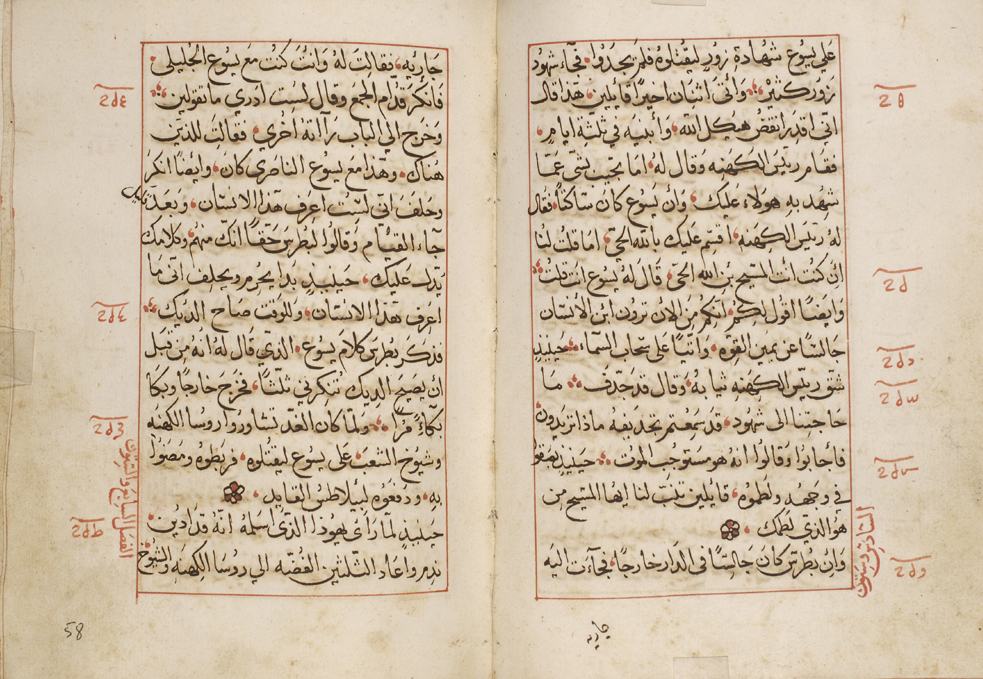 علي يسوع شهادة زور ليقتلوه فلم يجدوا فجآء شهود
زور كثير وأتى اثنان اخيرًا قايلين هذا قال
اني اقدر انقض هيكل الله وأبنيه في ثلثة ايام
فقام ريس الكهنه وقال له اما تجيب بشي عمّا
شهد به هولاء عليك وأن يسوع كان ساكتًا فقال
له ريس الكهنه اقسم عليك بالله الحي اما قلت لنا
ان كنت انت المسيح بن الله الحي قال له يسوع انت قلت
وايضًا اقول لكم أنكم من الان ترون ابن الانسان
جالسًا عن يمين القوه واتيًا على سحاب السماء حينيذٍ
شق ريس الكهنه ثيابه وقال قد جدف ما
حاجتنا الى شهود قد سمعتم تجديفه ماذا تريدون
فأجابوا وقالوا انه هو مستوجب الموت حينيذ بصقوا
في وجهه ولطموه قايلين تنبّ لنا ايها المسيح من
هو الذي لطمك
وان بطرس كان جالسًا في الدار خارجًا فجآءت اليه
جاريه
جاريه فقالت له وانت كنت مع يسوع الجليلي
فأنكر قدام الجمع وقال لست ادري ما تقولين
وخرج الي الباب رأته أخري فقالت للذين
هناك وهذا مع يسوع الناصري كان وايضًا انكر
وحلف اني لست اعرف هذا الانسان وبعد قليل
جآء القيام وقالوا لبطرس حقًا انك منهم وكلامك
يدل عليك حينيذٍ بدا يحرم ويحلف اني ما
اعرف هذا الانسان وللوقت صاح الديك
فذكر بطرس كلام يسوع الذي قال له انه من قبل
ان يصيح الديك تنكرني ثلثًا فخرج خارجًا وبكا
بكاءً مرًّا ولما كان الغد تشاوروا روسا الكهنه
وشيوخ الشعب على يسوع ليقتلوه فربطوه ومضوا
به ودفعوه لبيلاطس القايد
حينيذٍ لما رأى يهوذا الذي اسلمه انه قد ادين
ندم واعاد الثلثين الفضه الي روسا الكهنه والشيوخ
الفصل السابع والستون
58